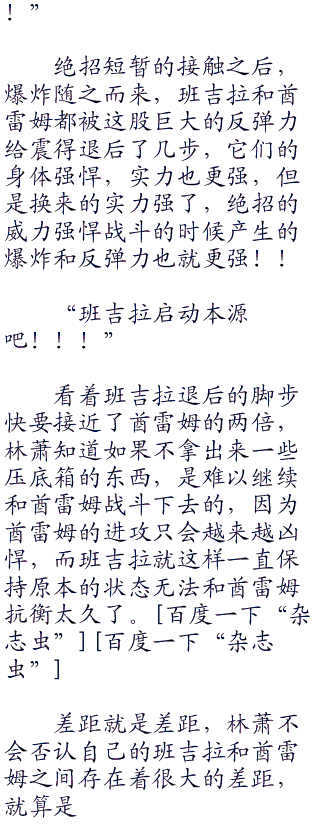 ！”
绝招短暂的接触之后，
爆炸随之而来，班吉拉和酋
雷姆都被这股巨大的反弹力
给震得退后了几步，它们的
身体强悍，实力也更强，但
是换来的实力强了，绝招的
威力强悍战斗的时候产生的
爆炸和反弹力也就更强！！
“班吉拉启动本源
吧！！！”
看着班吉拉退后的脚步
快要接近了酋雷姆的两倍，
林萧知道如果不拿出来一些
压底箱的东西，是难以继续
和酋雷姆战斗下去的，因为
酋雷姆的进攻只会越来越凶
悍，而班吉拉就这样一直保
持原本的状态无法和酋雷姆
抗衡太久了。[百度一下“杂
志虫”][百度一下“杂志
虫”]
差距就是差距，林萧不
会否认自己的班吉拉和酋雷
姆之间存在着很大的差距，
就算是